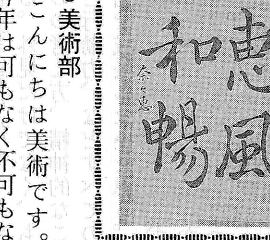 恵風
和暢
美術部
こんにちは美術です。
年は可もなく不可もな